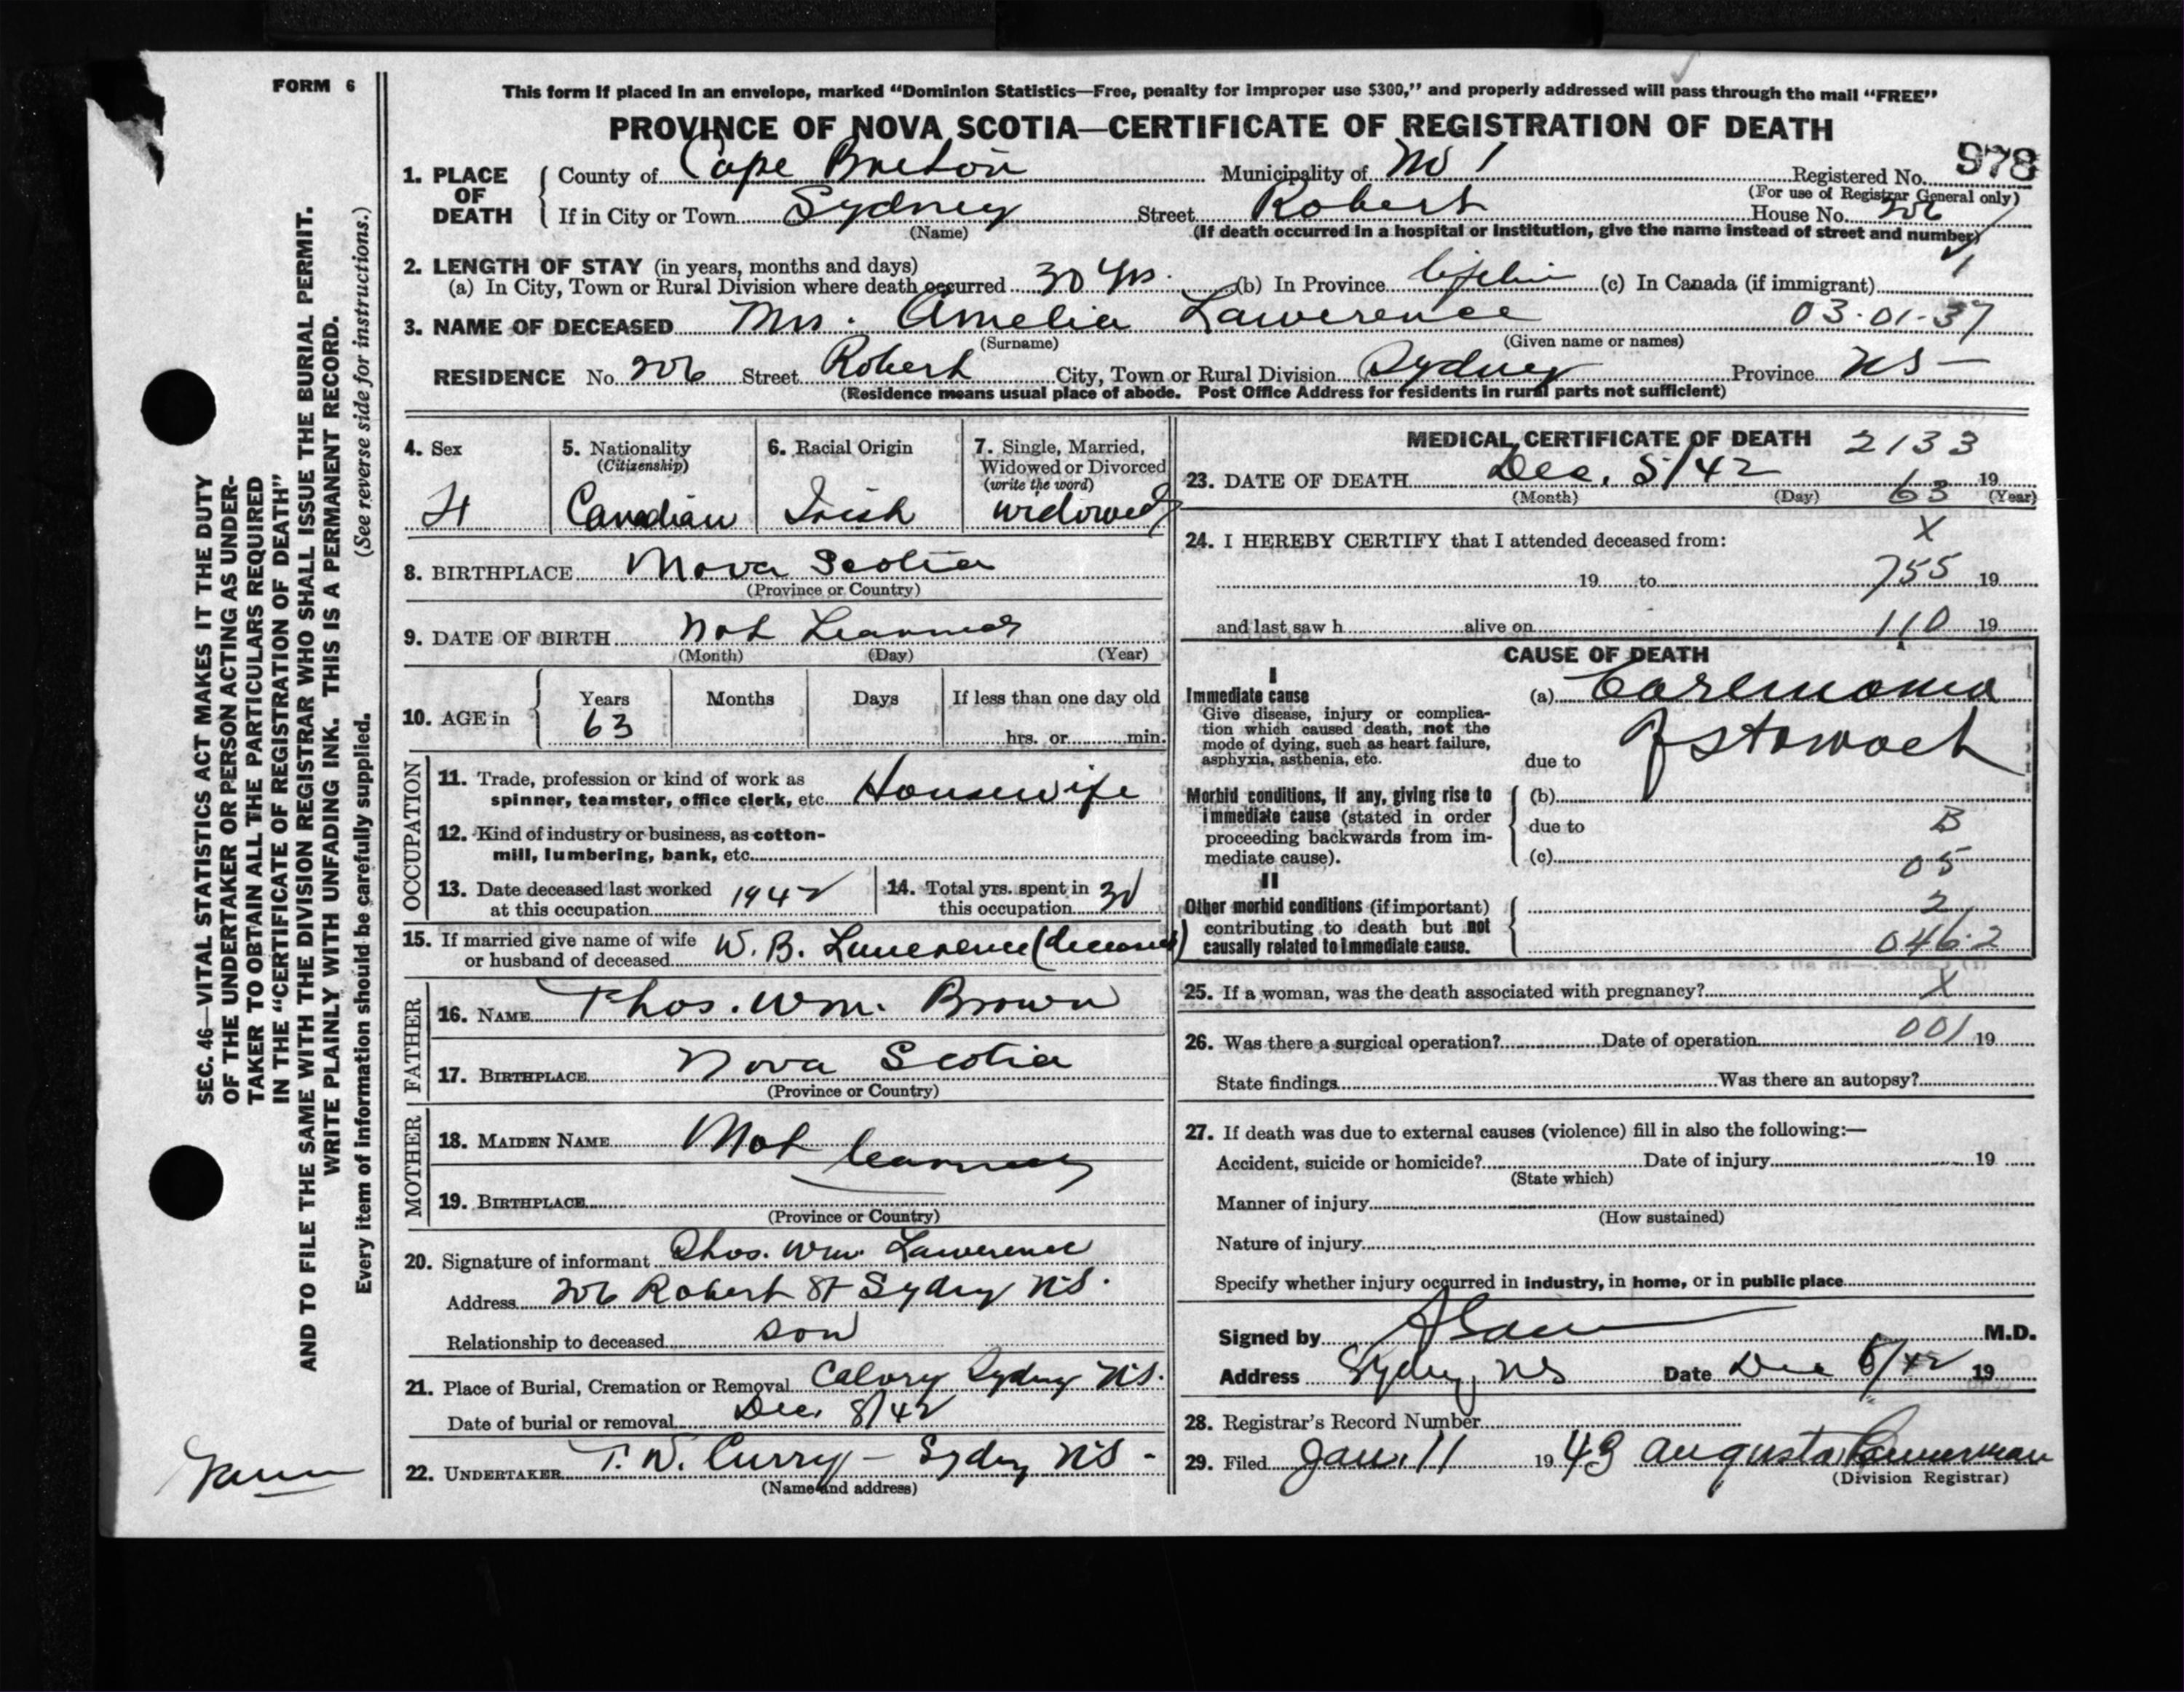 FORM 6
This form if placed in an envelope, marked “Dominion Statistics—Free, penalty for improper use $300,” and properly addressed will pass through the mail “FREE”
PROVINCE OF NOVA SCOTIA—CERTIFICATE OF REGISTRATION OF DEATH
978
1. PLACE OF DEATH
County of Cape Breton Municipality of No 1 Registered No.
(For use of Registrar General only)
If in City or Town Sydney Street Robert House No. 206
(Name) (If death occurred in a hospital or institution, give the name instead of street and number)
2. LENGTH OF STAY (in years, months and days)
(a) In City, Town or Rural Division where death occurred 30 Yrs. (b) In Province (c) In Canada (if immigrant)
3. NAME OF DECEASED Mrs. Amelia Lawerence 03-01-37
(Surname) (Given name or names)
RESIDENCE No. 206 Street Robert City, Town or Rural Division Sydney Province NS
(Residence means usual place of abode. Post Office Address for residents in rural parts not sufficient)
4. Sex
5. Nationality
(Citizenship)
Canadian
6. Racial Origin
Irish
7. Single, Married,
Widowed or Divorced
(write the word)
widowed
8. BIRTHPLACE Nova Scotia
(Province or Country)
9. DATE OF BIRTH Not Learned
(Month) (Day) (Year)
10. AGE in
Years Months Days If less than one day old
63
hrs. or min.
OCCUPATION
11. Trade, profession or kind of work as
spinner, teamster, office clerk, etc. Housewife
12. Kind of industry or business, as cotton-
mill, lumbering, bank, etc.
13. Date deceased last worked
at this occupation 1942
14. Total yrs. spent in
this occupation 30
15. If married give name of wife
or husband of deceased W. B. Lawerence (deceased)
FATHER
16. NAME Thos. Wm. Brown
17. BIRTHPLACE Nova Scotia
(Province or Country)
MOTHER
18. MAIDEN NAME Not learned
19. BIRTHPLACE
(Province or Country)
20. Signature of informant Thos. Wm. Lawerence
Address 206 Robert St Sydney NS.
Relationship to deceased son
21. Place of Burial, Cremation or Removal Calvary Sydney NS.
Date of burial or removal Dec. 8/42
22. UNDERTAKER T. W. Curry – Sydney NS -
(Name and address)
MEDICAL CERTIFICATE OF DEATH 2133
23. DATE OF DEATH Dec. 5/42 63 19
(Month) (Day) (Year)
24. I HEREBY CERTIFY that I attended deceased from: X
19 to 755 19
and last saw h alive on 110 19
CAUSE OF DEATH
I
Immediate cause
Give disease, injury or complica-
tion which caused death, not the
mode of dying, such as heart failure,
asphyxia, asthenia, etc.
(a) Carcinoma
of stomach
due to
Morbid conditions, if any, giving rise to
immediate cause (stated in order
proceeding backwards from im-
mediate cause).
(b)
due to B
(c) 05
II
Other morbid conditions (if important)
contributing to death but not
causally related to immediate cause.
2
046.2
25. If a woman, was the death associated with pregnancy? X
26. Was there a surgical operation? Date of operation 001 19
State findings Was there an autopsy?
27. If death was due to external causes (violence) fill in also the following:—
Accident, suicide or homicide? Date of injury 19
(State which)
Manner of injury
(How sustained)
Nature of injury
Specify whether injury occurred in industry, in home, or in public place
Signed by M.D.
Address Sydney, NS Date Dec 8/42 19
28. Registrar’s Record Number
29. Filed Jan. 11 1943 Augusta
(Division Registrar)
SEC. 46—VITAL STATISTICS ACT MAKES IT THE DUTY
OF THE UNDERTAKER OR PERSON ACTING AS UNDER-
TAKER TO OBTAIN ALL THE PARTICULARS REQUIRED
IN THE “CERTIFICATE OF REGISTRATION OF DEATH”
AND TO FILE THE SAME WITH THE DIVISION REGISTRAR WHO SHALL ISSUE THE BURIAL PERMIT.
WRITE PLAINLY WITH UNFADING INK. THIS IS A PERMANENT RECORD.
Every item of information should be carefully supplied. (See reverse side for instructions.)